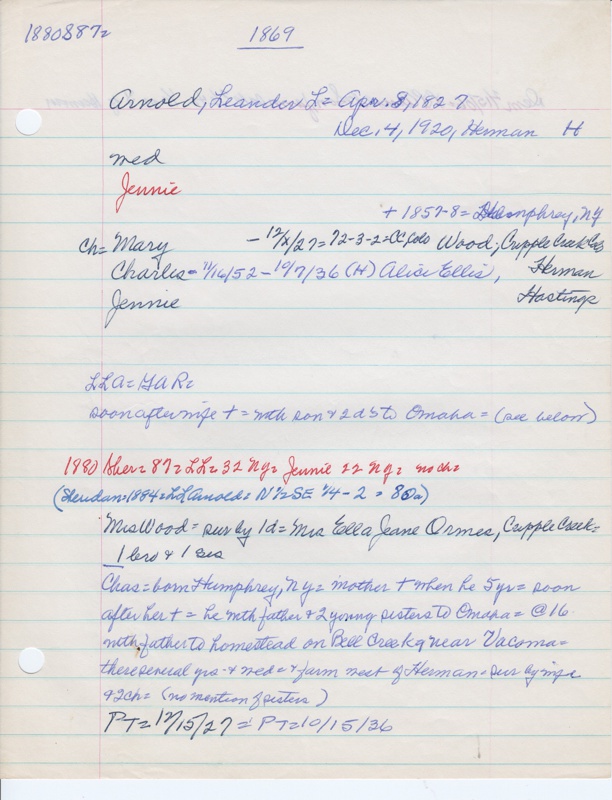 1880S87=
1869
Arnold, Leander L= Apr. 8, 1827
Dec. 4, 1920, Herman H
med
Jennie
+ 1857-8= Humphrey, NY
Ch= Mary - 12/x/27=72-3-2=CC, Colo Wood, Cripple Creek Colo
Charles - 11/16/52 - 10/7/36 (H) Alice Ellis, Herman
Jennie Hastings
LLA= GAR=
soon after wife + = with son & 2 ds to Omaha = (see below)
1880 Sher= 87= LL= 52 NY= Jennie 22 NY= no ch=
(Sheridan=1884=LLArnold= N½SE ¼-2 = 80a)
Mrs Wood= sur by 1d= Mrs Ella Jeane Ormes, Cripple Creek=
1 bro & 1 sis
Chas= born Humphrey, NY= mother + when he 5 yr= soon
after her + = he with father & 2 young sisters to Omaha= @16
with father to homestead on Bell Creek near Vacoma=
there several yrs & med= & farm west of Herman= sur by wife
& 2 ch= (no mention of sisters)
PT=12/15/27 = PT=10/15/36